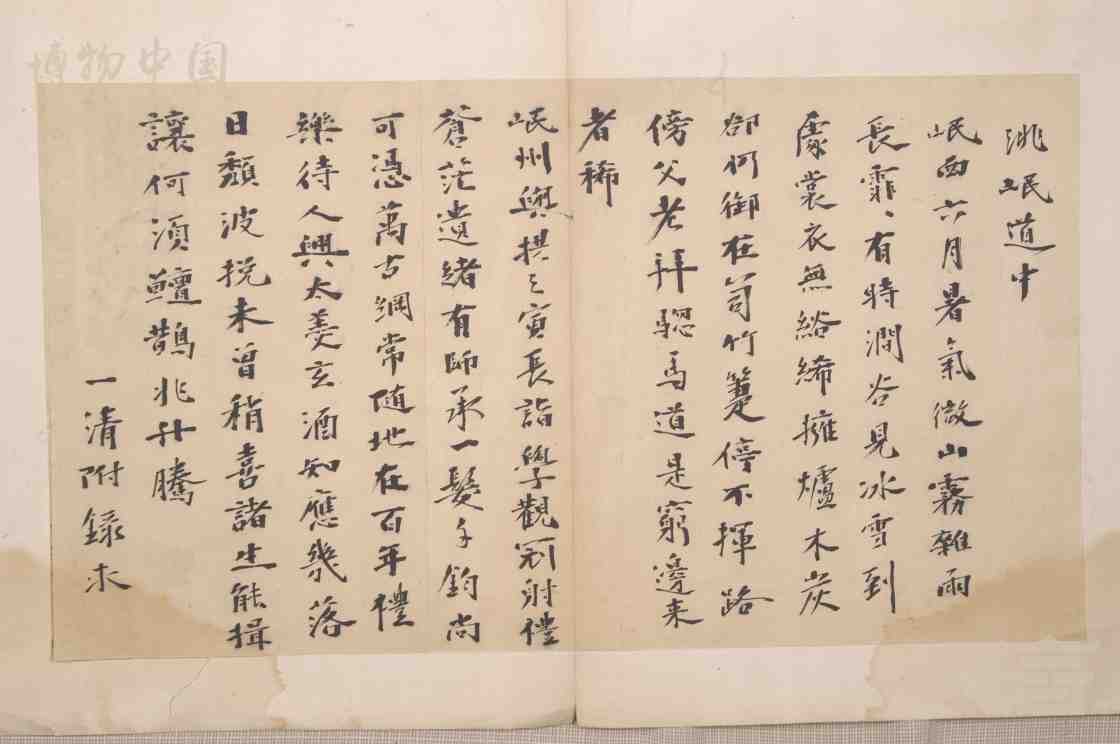 博物中国
洮岷道中
岷西六月暑氣微山霧雜雨
長霏〻有時澗谷見冰雪到
處裳衣無綌絺擁爐木炭
卻何御在笥竹箑停不揮路
傍父老拜驄馬道是窮邊来
者稀
岷州與拱之寅長詣學觀冠射禮
蒼茫遺緒有師承一髮千鈞尚
可憑萬古綱常随地在百年禮
樂待人興太羹玄酒知應幾落
日頹波挽未曾稍喜諸生能揖
讓何須鱣鵲兆升騰
一清附錄求